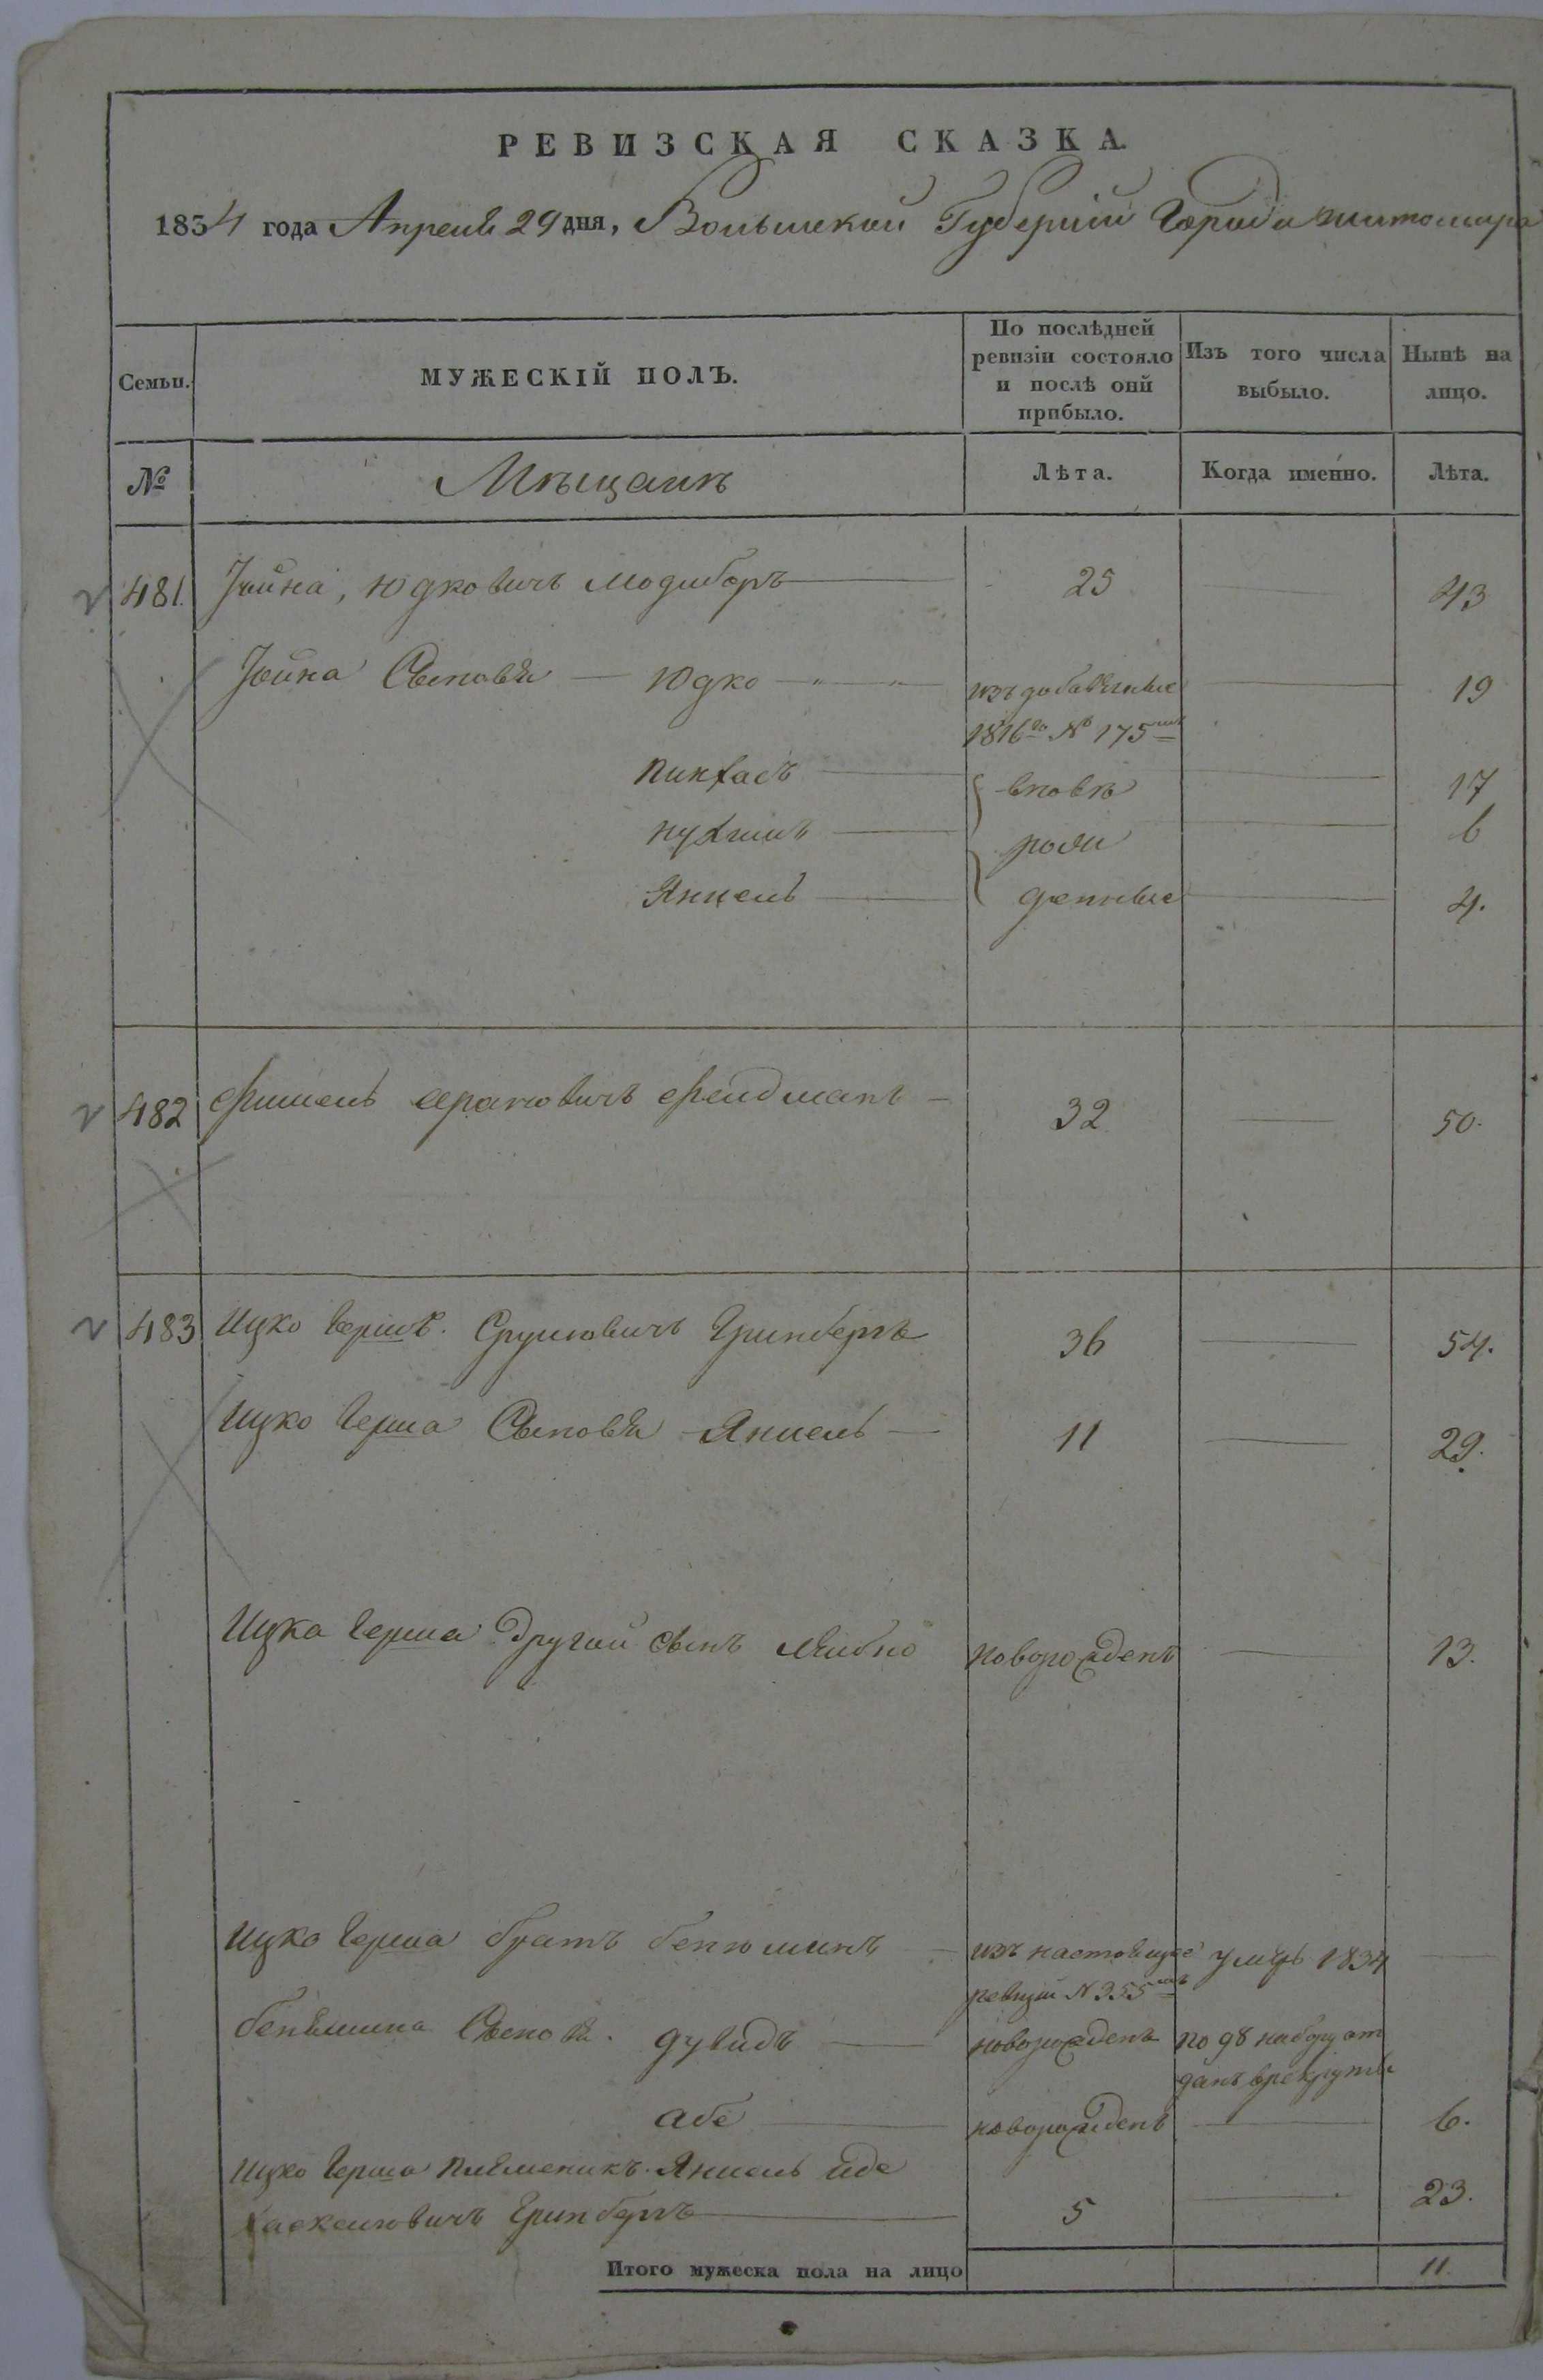 РЕВИЗСКАЯ СКАЗКА.
1834 года Апреля 29 дня, Волынской Губернии Города Житомира
Семьи.
МУЖЕСКІЙ ПОЛЪ.
По послѣдней
ревизіи состояло
и послѣ оний
прибыло.
Изъ того числа
выбыло.
Нынѣ на
лицо.
№
Мѣщанѣ
Лѣта.
Когда именно.
Лѣта.
481. Іойна, Юдковичъ Модиборъ 25 43
Іойна Сыновья Юдко изъ добавленые 19
1816го № 175
Пинхасъ вновь 17
Нухимъ рож 6
Янкель денные 4.
482 Фишель Фельдманъ 32 50.
483 Ицко Гершъ. Сруловичъ Гринбергъ 36 54.
Ицко Герша Сыновья Янкель 11 29.
Ицка Герша Другой сынъ Лейбко новорожденъ 13.
Ицко Герша братъ Бенюминъ изъ настоящее умеръ 1834
ревизии N 355
Бенямина Сыновья. Дувидъ новорожденъ по 98 набору от
данъ в рекруты
Абе новорожденъ 6.
Ицко Герша племеникъ. Янкель Иде
Хаскелевичъ Гринбергъ 5 23.
Итого мужеска пола на лицо 11.